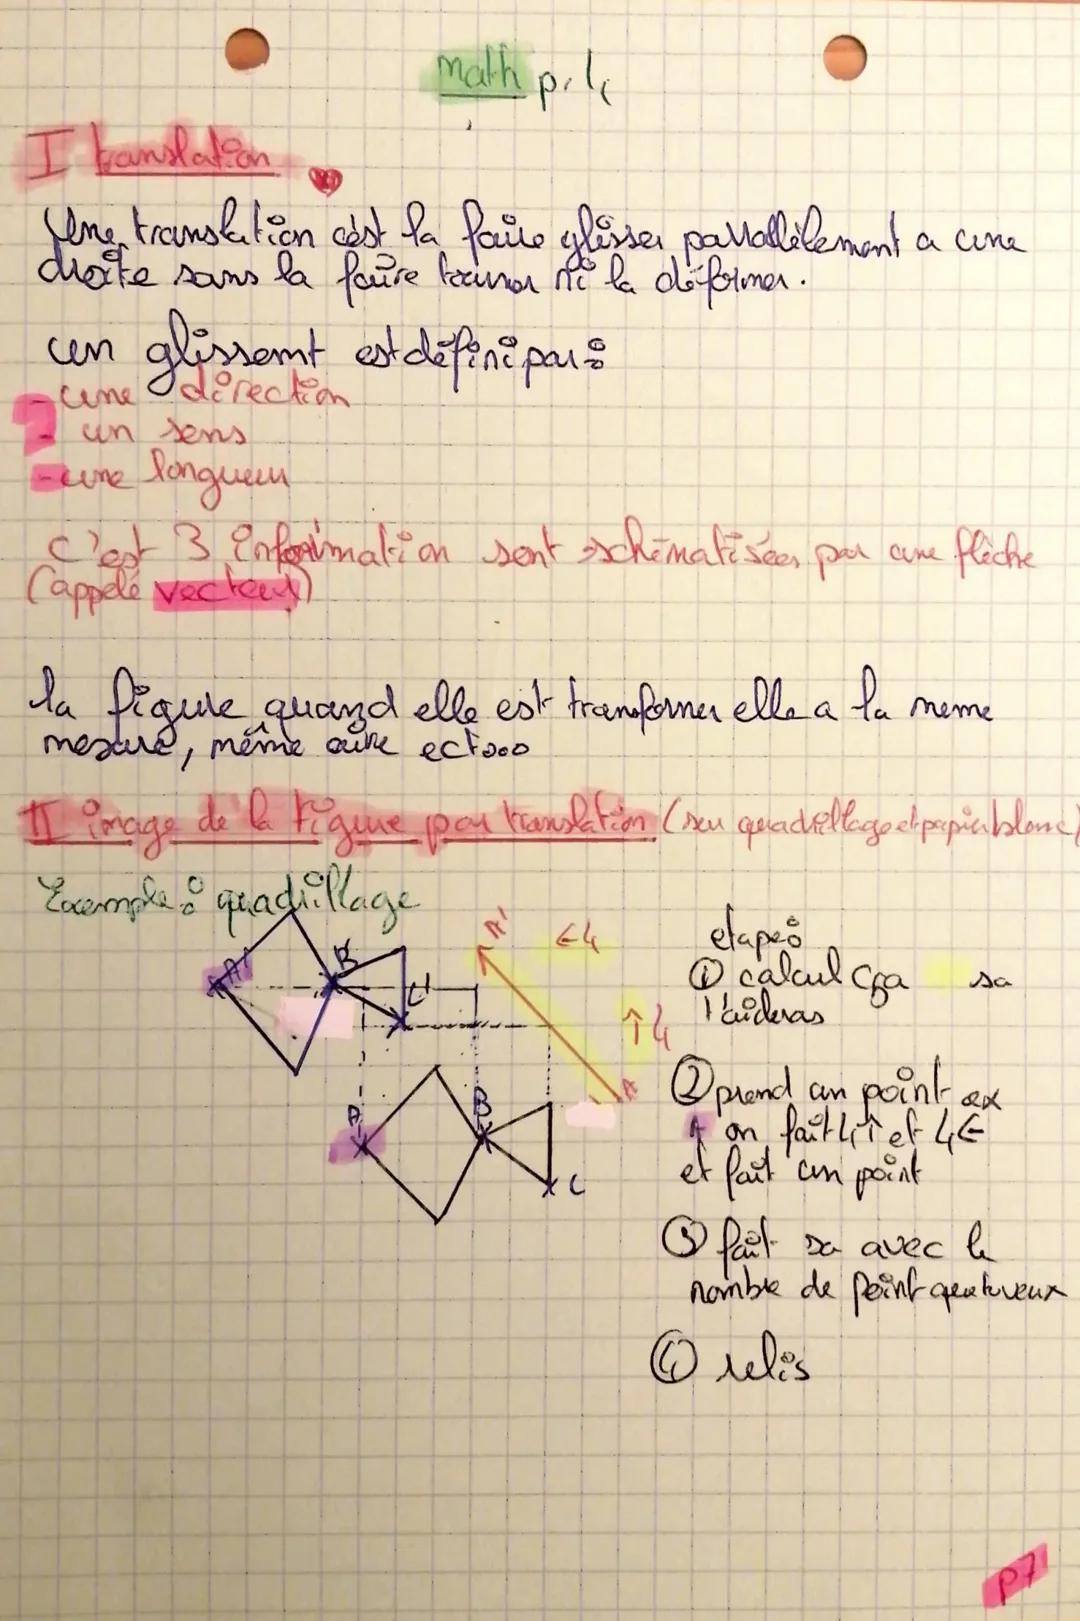 math p.4
I translation
Une translation c'est la faire glisser parallèlement a une
droite sans la faire tourner ni la déformer.
un glissemt est défini par :
- une direction
- un sens
- une longueur
C'est 3 information sont schématisées par une flèche
(appelé vecteur)
la figure quand elle est transformer elle a la meme
mesure, même aire ect...
II image de la figure par translation (sur quadrillage et papier blanc)
Exemple : quadrillage
A' B' C'
A' ←4
↑4 A
A B C
etape :
① calcul sa
l'aideras
② prend un point ex
A on fait 4↑ et 4←
et fait un point
③ fait sa avec le
nombre de point que tu veux
④ relis
p7